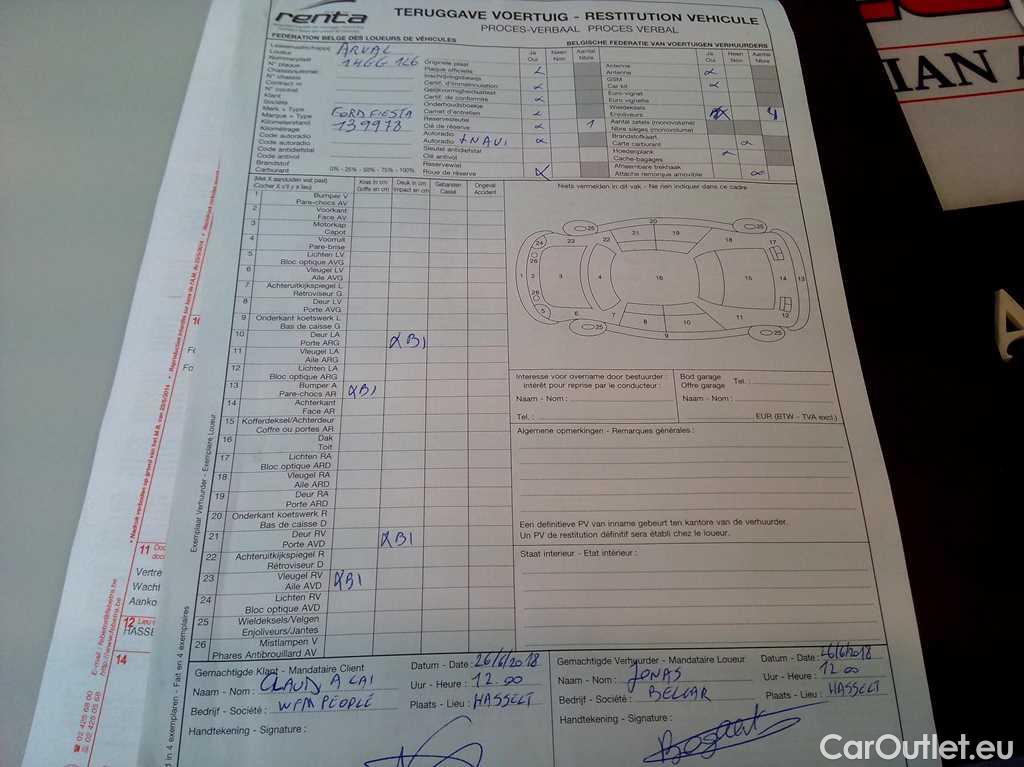 renta
TERUGGAVE VOERTUIG - RESTITUTION VEHICULE
PROCES-VERBAAL PROCES VERBAL
FEDERATION BELGE DES LOUEURS DE VÉHICULES
BELGISCHE FEDERATIE VAN VOERTUIGEN VERHUURDERS
Leasemaatschappij
Loueur ARVAL
Nummerplaat
N° plaque 1HGG 126
Chassisnummer
N° chassis
Contract nr
N° contrat
Klant
Société
Merk + Type
Marque + Type FORD FIESTA
Kilometerstand
Kilométrage 139978
Code autoradio
Code autoradio
Code antidiefstal
Code antivol
Brandstof
Carburant 0% - 25% - 50% - 75% - 100%
Ja Oui
Neen Non
Aantal Nbre
Originele plaat
Plaque officielle
Inschrijvingsbewijs
Certif. d'immatriculation
Gelijkvormigheidsattest
Certif. de conformité
Onderhoudsboekje
Carnet d'entretien
Reservesleutel
Clé de réserve 1
Autoradio
Autoradio + NAVI
Sleutel antidiefstal
Clé antivol
Reservewiel
Roue de réserve X
Ja Oui
Neen Non
Aantal Nbre
Antenne
Antenne
GSM
Car kit
Euro vignet
Euro vignette
Wieldeksels
Enjoliveurs 4
Aantal zetels (monovolume)
Nbre sièges (monovolume)
Brandstofkaart
Carte carburant
Hoedenplank
Cache-bagages
Afneembare trekhaak
Attache remorque amovible
(Met X aanduiden wat past)
(Cocher X s'il y a lieu)
Kras in cm
Griffe en cm
Deuk in cm
Impact en cm
Gebarsten
Cassé
Ongeval
Accident
1 Bumper V
Pare-chocs AV
2 Voorkant
Face AV
3 Motorkap
Capot
4 Voorruit
Pare-brise
5 Lichten LV
Bloc optique AVG
6 Vleugel LV
Aile AVG
7 Achteruitkijkspiegel L
Rétroviseur G
8 Deur LV
Porte AVG
9 Onderkant koetswerk L
Bas de caisse G
10 Deur LA
Porte ARG XB1
11 Vleugel LA
Aile ARG
12 Lichten LA
Bloc optique ARG
13 Bumper A
Pare-chocs AR XB1
14 Achterkant
Face AR
15 Kofferdeksel/Achterdeur
Coffre ou portes AR
16 Dak
Toit
17 Lichten RA
Bloc optique ARD
18 Vleugel RA
Aile ARD
19 Deur RA
Porte ARD
20 Onderkant koetswerk R
Bas de caisse D
21 Deur RV
Porte AVD XB1
22 Achteruitkijkspiegel R
Rétroviseur D
23 Vleugel RV
Aile AVD XB1
24 Lichten RV
Bloc optique AVD
25 Wieldeksels/Velgen
Enjoliveurs/Jantes
26 Mistlampen V
Phares Antibrouillard AV
Niets vermelden in dit vak - Ne rien indiquer dans ce cadre
Interesse voor overname door bestuurder :
intérêt pour reprise par le conducteur :
Naam - Nom :
Tel. :
Bod garage
Offre garage Tel. :
Naam - Nom :
EUR (BTW - TVA excl.)
Algemene opmerkingen - Remarques générales :
Een definitieve PV van inname gebeurt ten kantore van de verhuurder.
Un PV de restitution définitif sera établi chez le loueur.
Staat interieur - Etat intérieur :
Gemachtigde Klant - Mandataire Client
Naam - Nom :
Bedrijf - Société : WFM PEOPLE
Handtekening - Signature :
Datum - Date : 26/6/2018
Uur - Heure : 12.00
Plaats - Lieu : HASSELT
Gemachtigde Verhuurder - Mandataire Loueur
Naam - Nom : JONAS
Bedrijf - Société : BELCAR
Handtekening - Signature :
Datum - Date : 26/6/2018
Uur - Heure : 12.00
Plaats - Lieu : HASSELT
Exemplaar Verhuurder - Exemplaire Loueur
d in 4 exemplaren - Fait en 4 exemplaires
11
Vertre
Wacht
Aanko
12
HASSE
14
http://www.febetra.be
02 425 68 00
02 425 05 68
IAN A
CarOutlet.eu